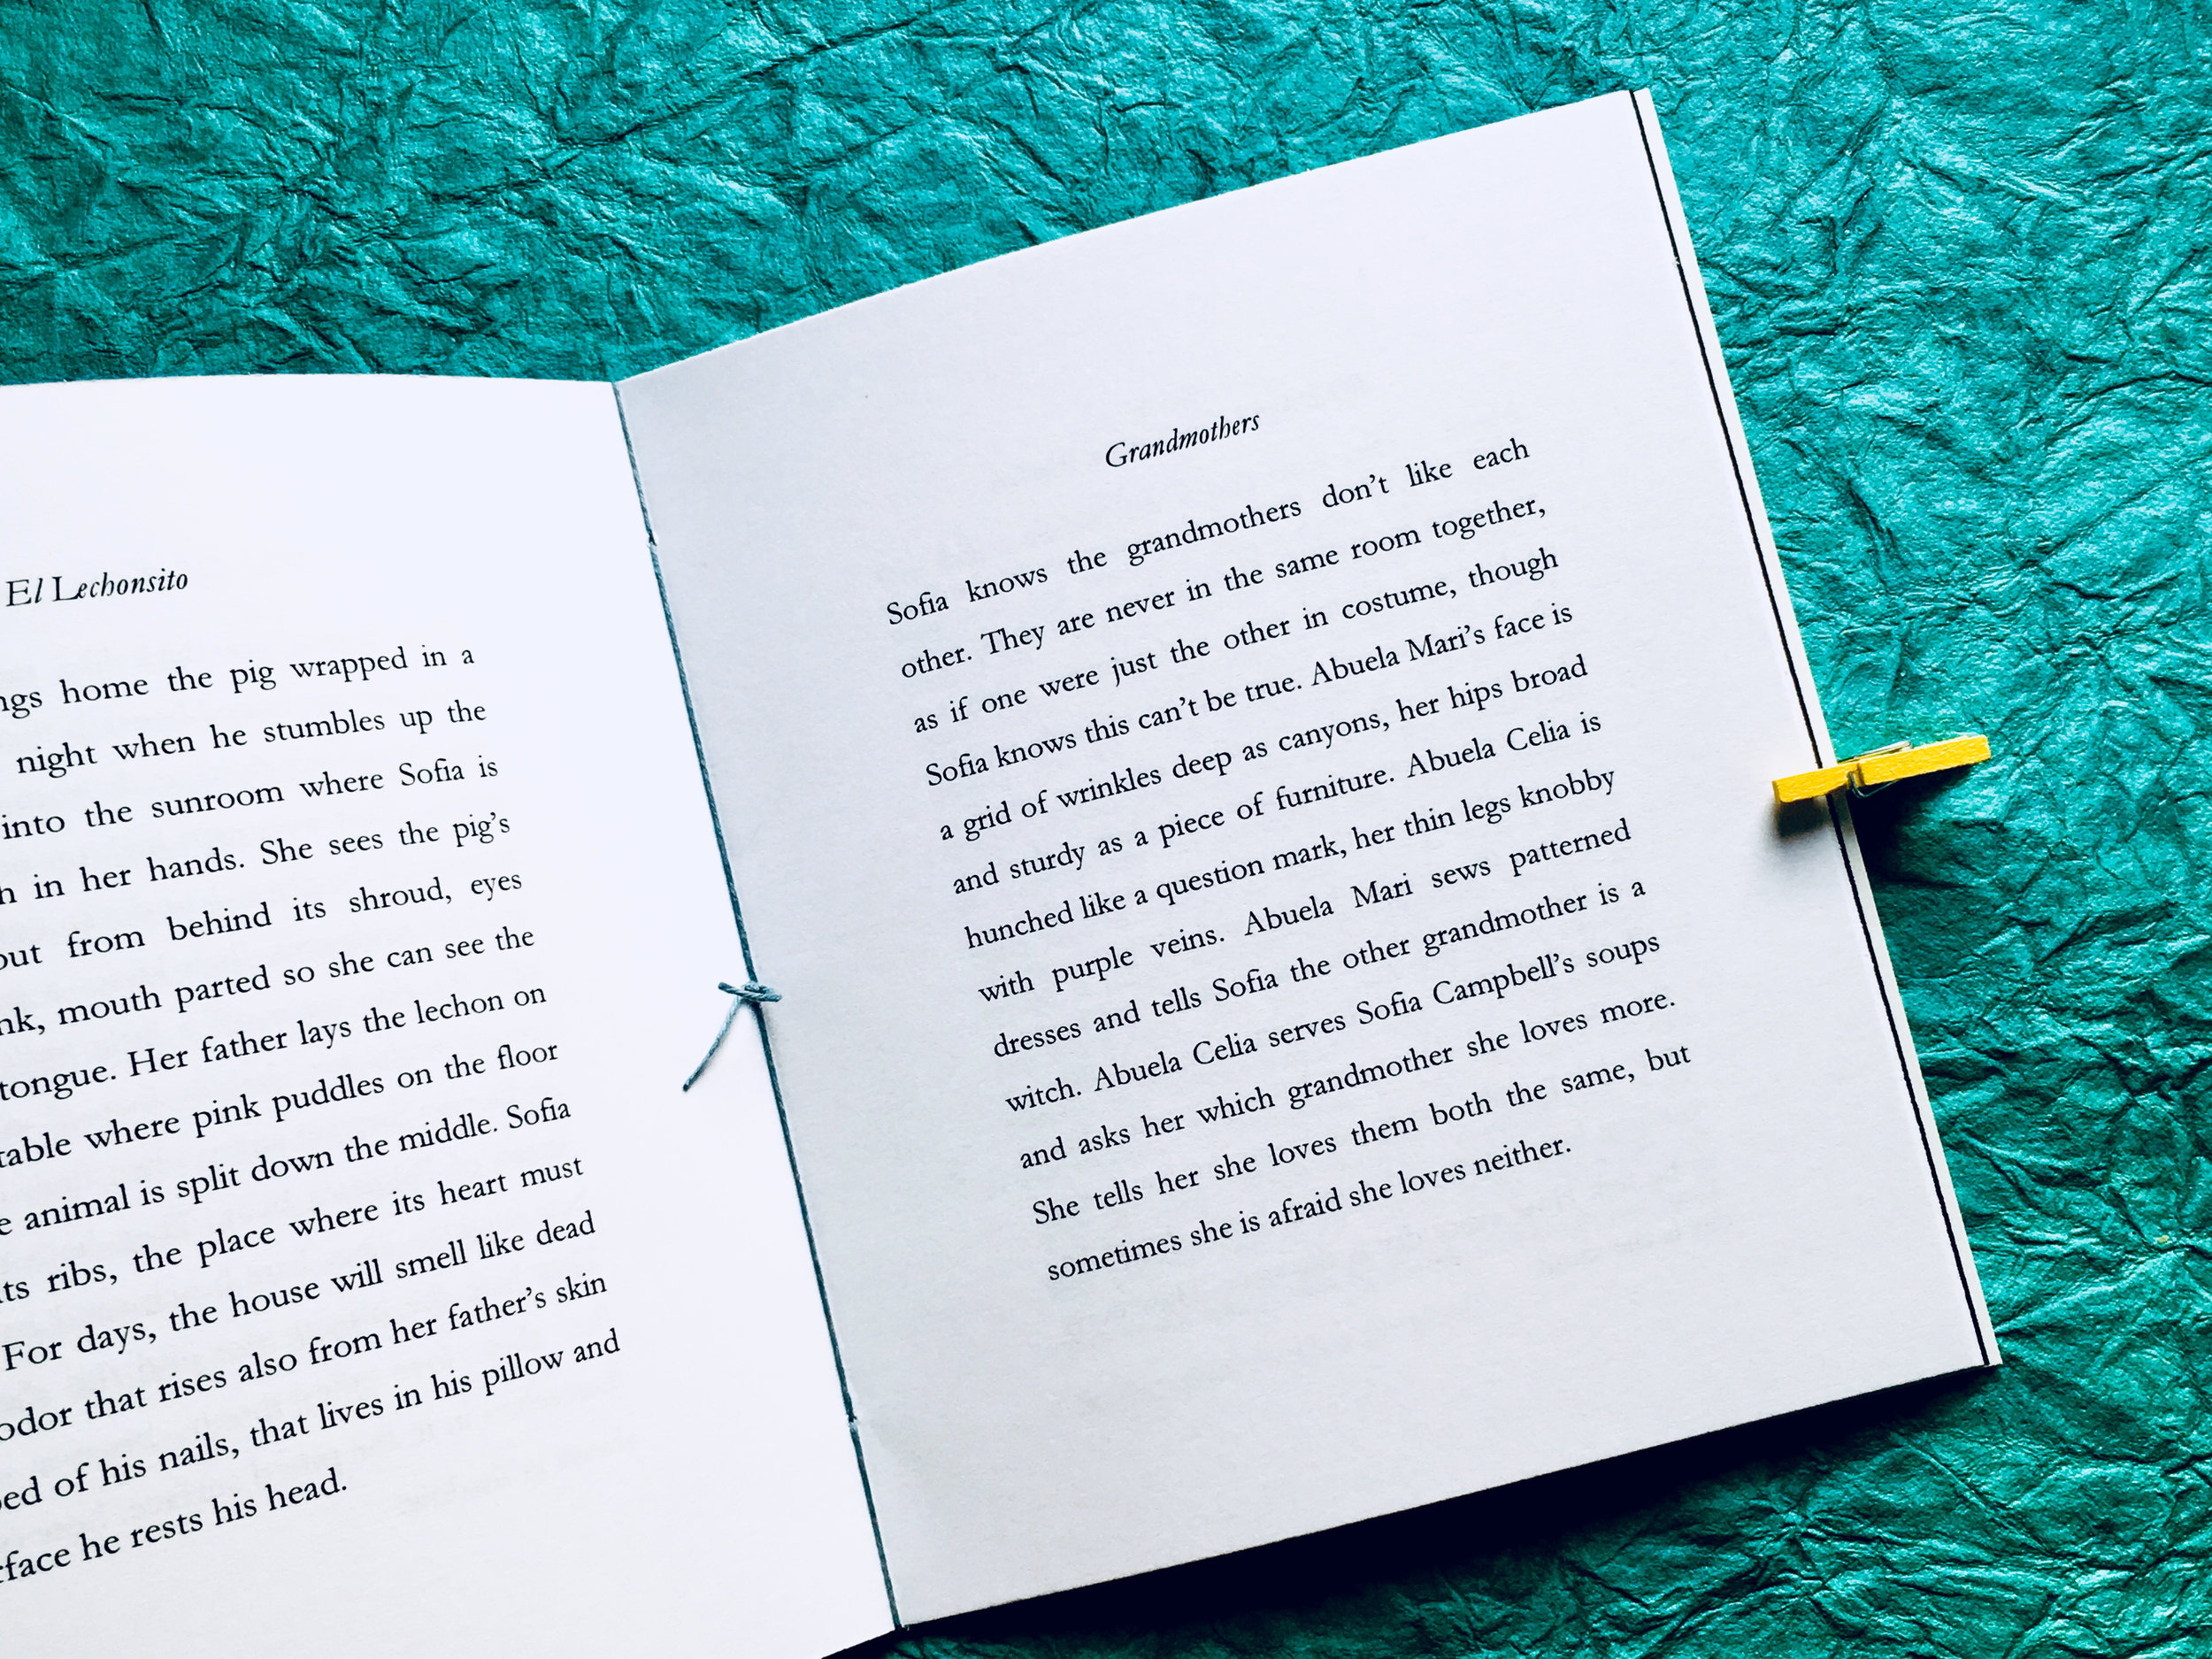 El Lechonsito
home the pig wrapped in a
night when he stumbles up the
into the sunroom where Sofia is
in her hands. She sees the pig's
from behind its shroud, eyes
mouth parted so she can see the
tongue. Her father lays the lechon on
table where pink puddles on the floor
animal is split down the middle. Sofia
ribs, the place where its heart must
For days, the house will smell like dead
odor that rises also from her father's skin
of his nails, that lives in his pillow and
he rests his head.
Grandmothers
Sofia knows the grandmothers don't like each
other. They are never in the same room together,
as if one were just the other in costume, though
Sofia knows this can't be true. Abuela Mari's face is
a grid of wrinkles deep as canyons, her hips broad
and sturdy as a piece of furniture. Abuela Celia is
hunched like a question mark, her thin legs knobby
with purple veins. Abuela Mari sews patterned
dresses and tells Sofia the other grandmother is a
witch. Abuela Celia serves Sofia Campbell's soups
and asks her which grandmother she loves more.
She tells her she loves them both the same, but
sometimes she is afraid she loves neither.